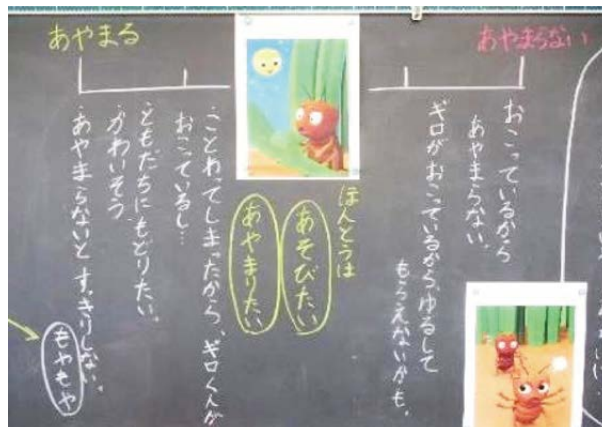 あやまらない
おこっているから
あやまらない。
ギロがおこっているから、ゆるして
もらえないかも。
ほんとうは
あそびたい
あやまりたい
あやまる
ことわってしまったから、ギロくんが
おこっているし…
ともだちにもどりたい。
かわいそう
あやまらないと すっきりしない。
もやもや